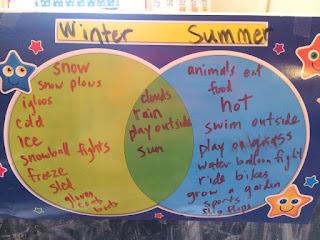 Winter Summer
snow
snow plows
igloos
cold
ice
snowball fights
freeze
sled
gloves
coats
boots
clouds
rain
play outside
sun
animals eat
food
hot
swim outside
play on grass
water balloon fight
ride bikes
grow a garden
sports
flip flops